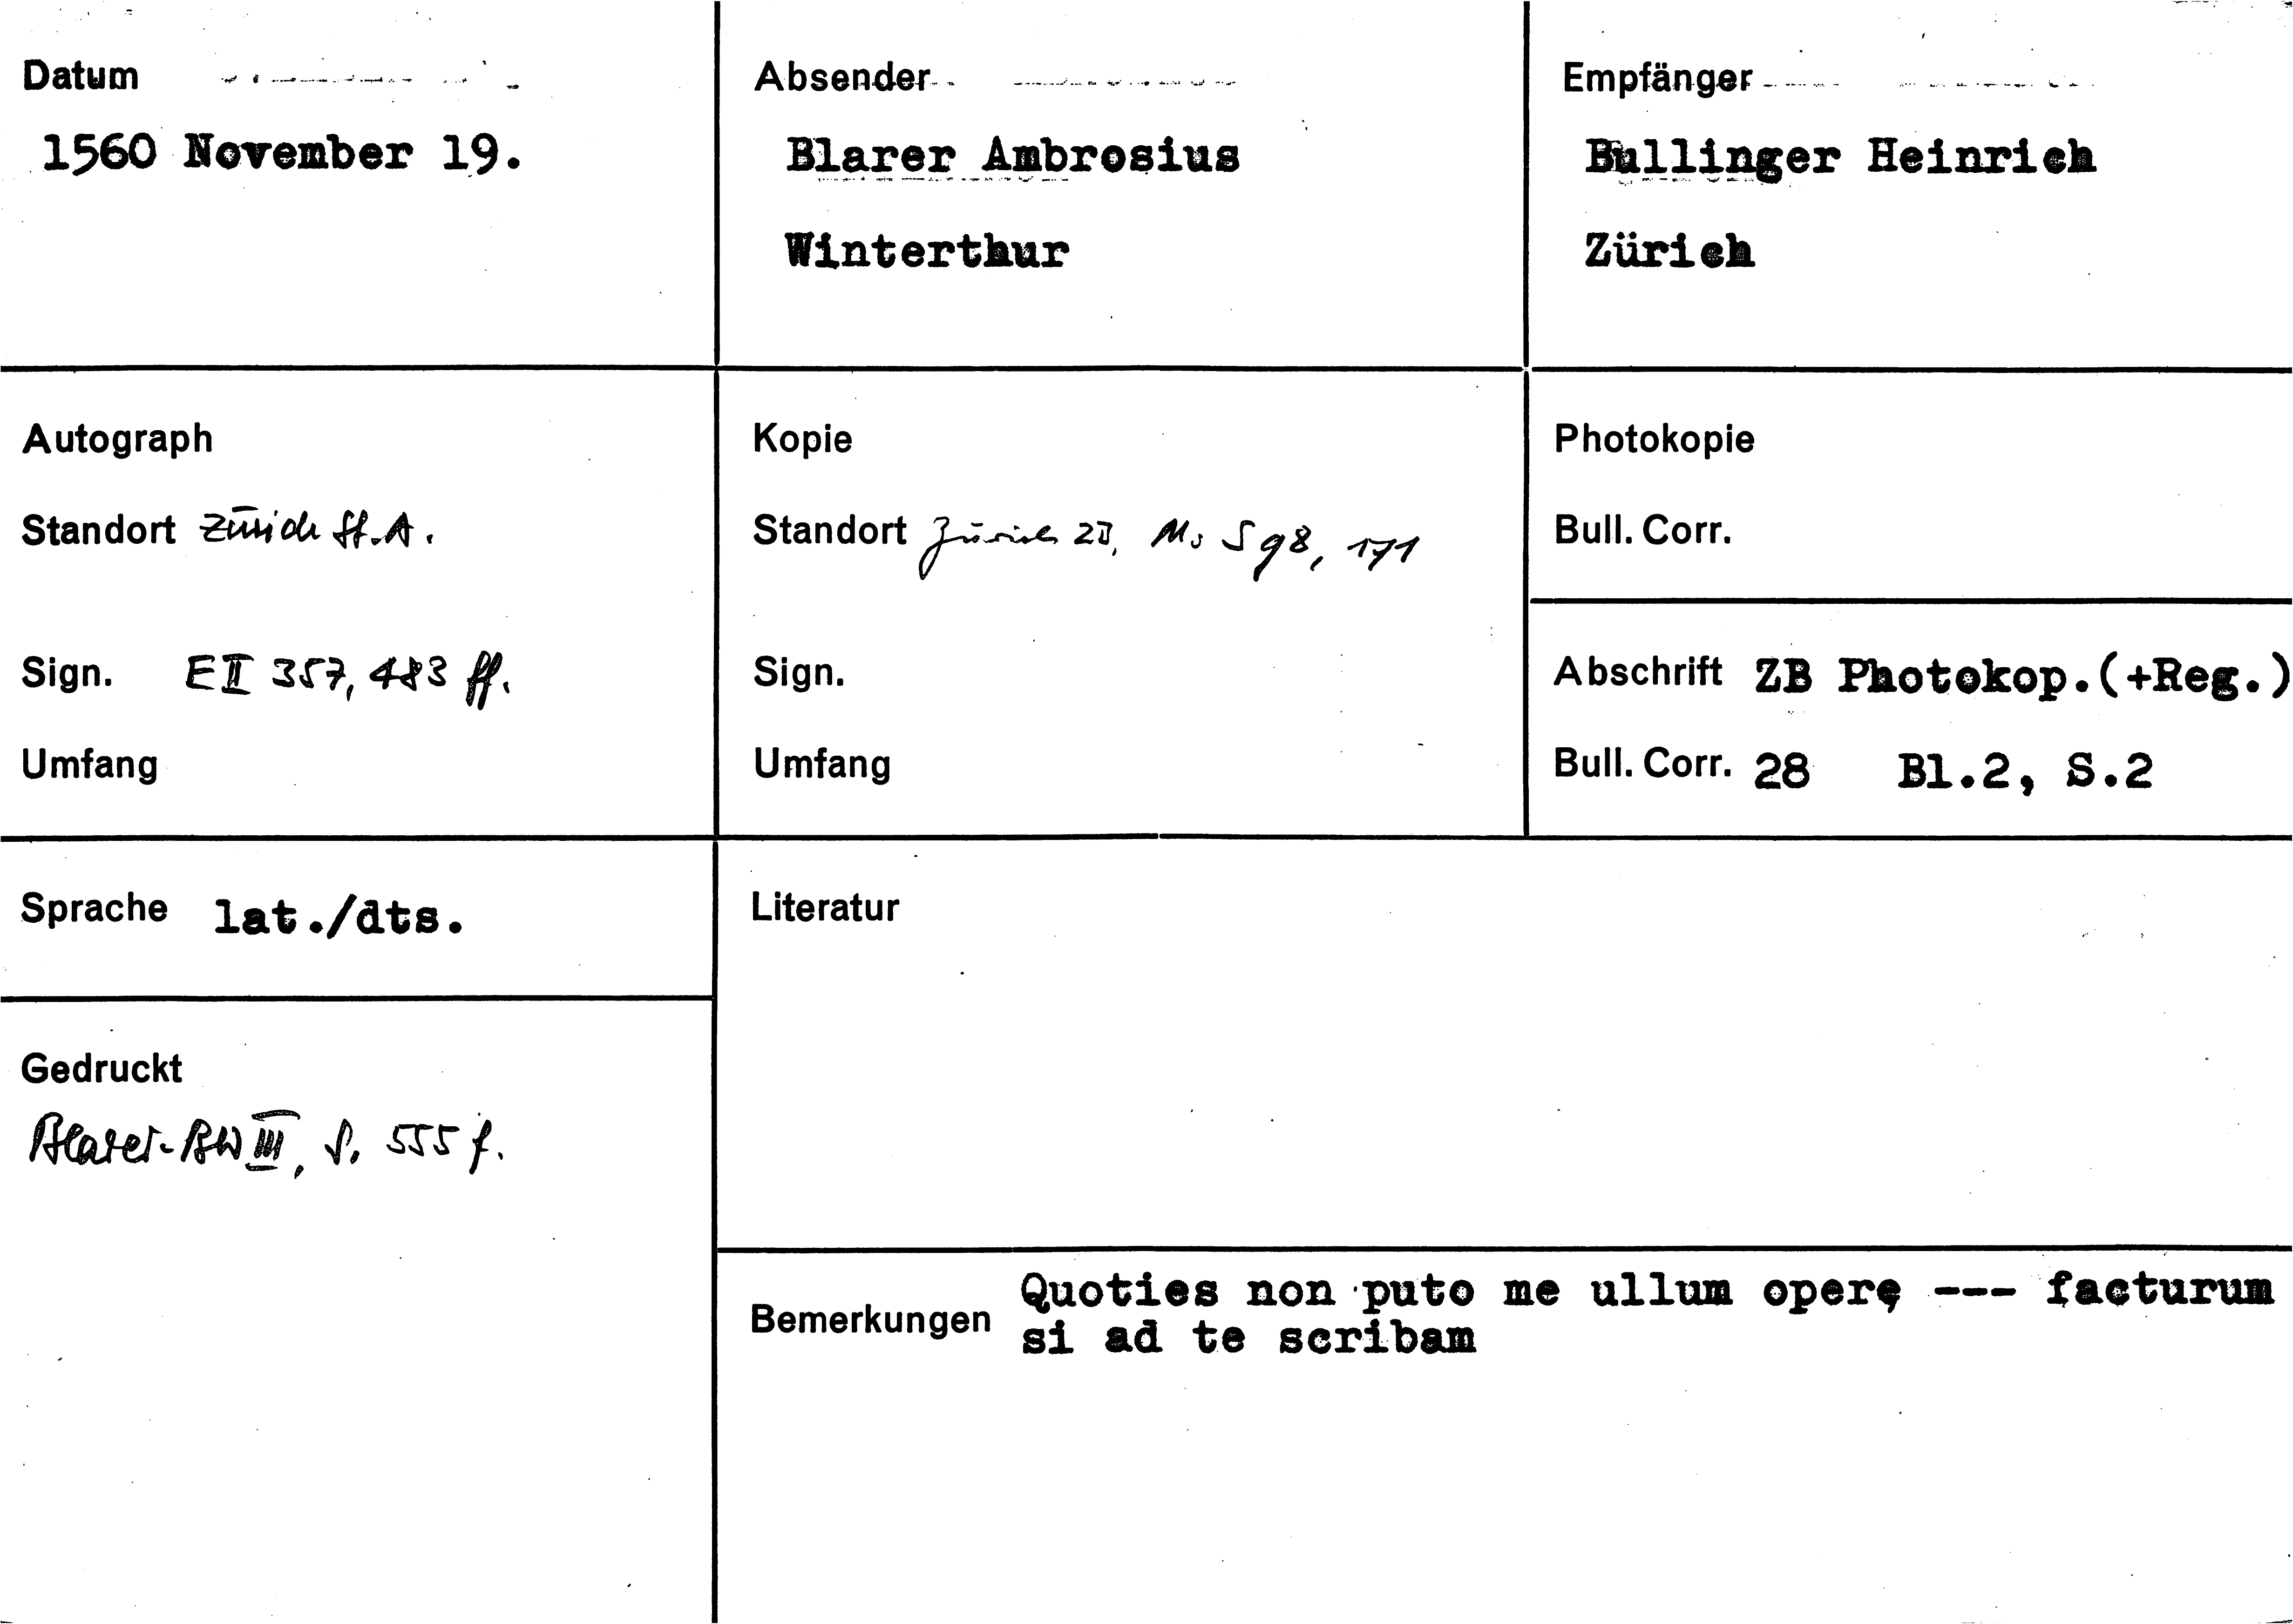 Datum
1560 November 19.
Absender
Blarer Ambrosius
Winterthur
Empfänger
Bullinger Heinrich
Zürich
Autograph
Standort Zürich St.A.
Sign. E II 357, 483 ff.
Umfang
Kopie
Standort Zürich ZB, Ms S 98, 171
Sign.
Umfang
Photokopie
Bull. Corr.
Abschrift ZB Photokop.(+Reg.)
Bull. Corr. 28 Bl.2, S.2
Sprache lat./dts.
Gedruckt
Blarer-BW III, S. 555 f.
Literatur
Bemerkungen
Quoties non puto me ullum operę --- facturum
si ad te scribam